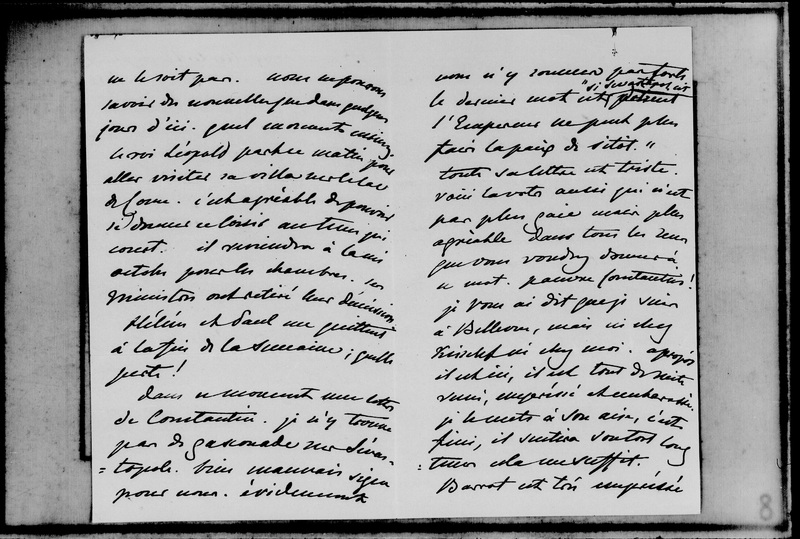 ne le soit pas. nous ne pouvons
savoir des nouvelles que dans quelques
jours d'ici. quel moment
le roi Léopold part ce matin pour
aller visiter sa villa sur le lac
de Come. c'est agréable de pouvoir
se donner ce loisir au tems qui
court. il reviendra à la mi
octobre pour les chambres. ses
ministres ont retiré leur démission
Hélène et Paul me quittent
à la fin de la semaine ; quelle
perte !
Dans ce moment une lettre
de Constantin. je n'y trouve
pas de gasconade sur Sévas-
=topole. bien mauvais signe
pour nous. évidemment
nous n'y sommes pas forts
"si Sevastopol est
le dernier mot est
l'Empereur ne peut plus
faire la paix de sitot."
toute sa lettre est triste.
voici la votre aussi qui n'est
pas plus gaie mais plus
agréable dans tous les sens
que vous voudrez donner à
ce mot. pauvre Constantin !
je vous ai dit que je suis
à Bellevue, mais ni chez
ni chez moi. apropos
il est ici, il est tout de suite
venu, empressé et embarassé.
je le mets à son aise, c'est
fini, il sentira son tort long
=tems cela me suffit.
Barrot est très empressé
8